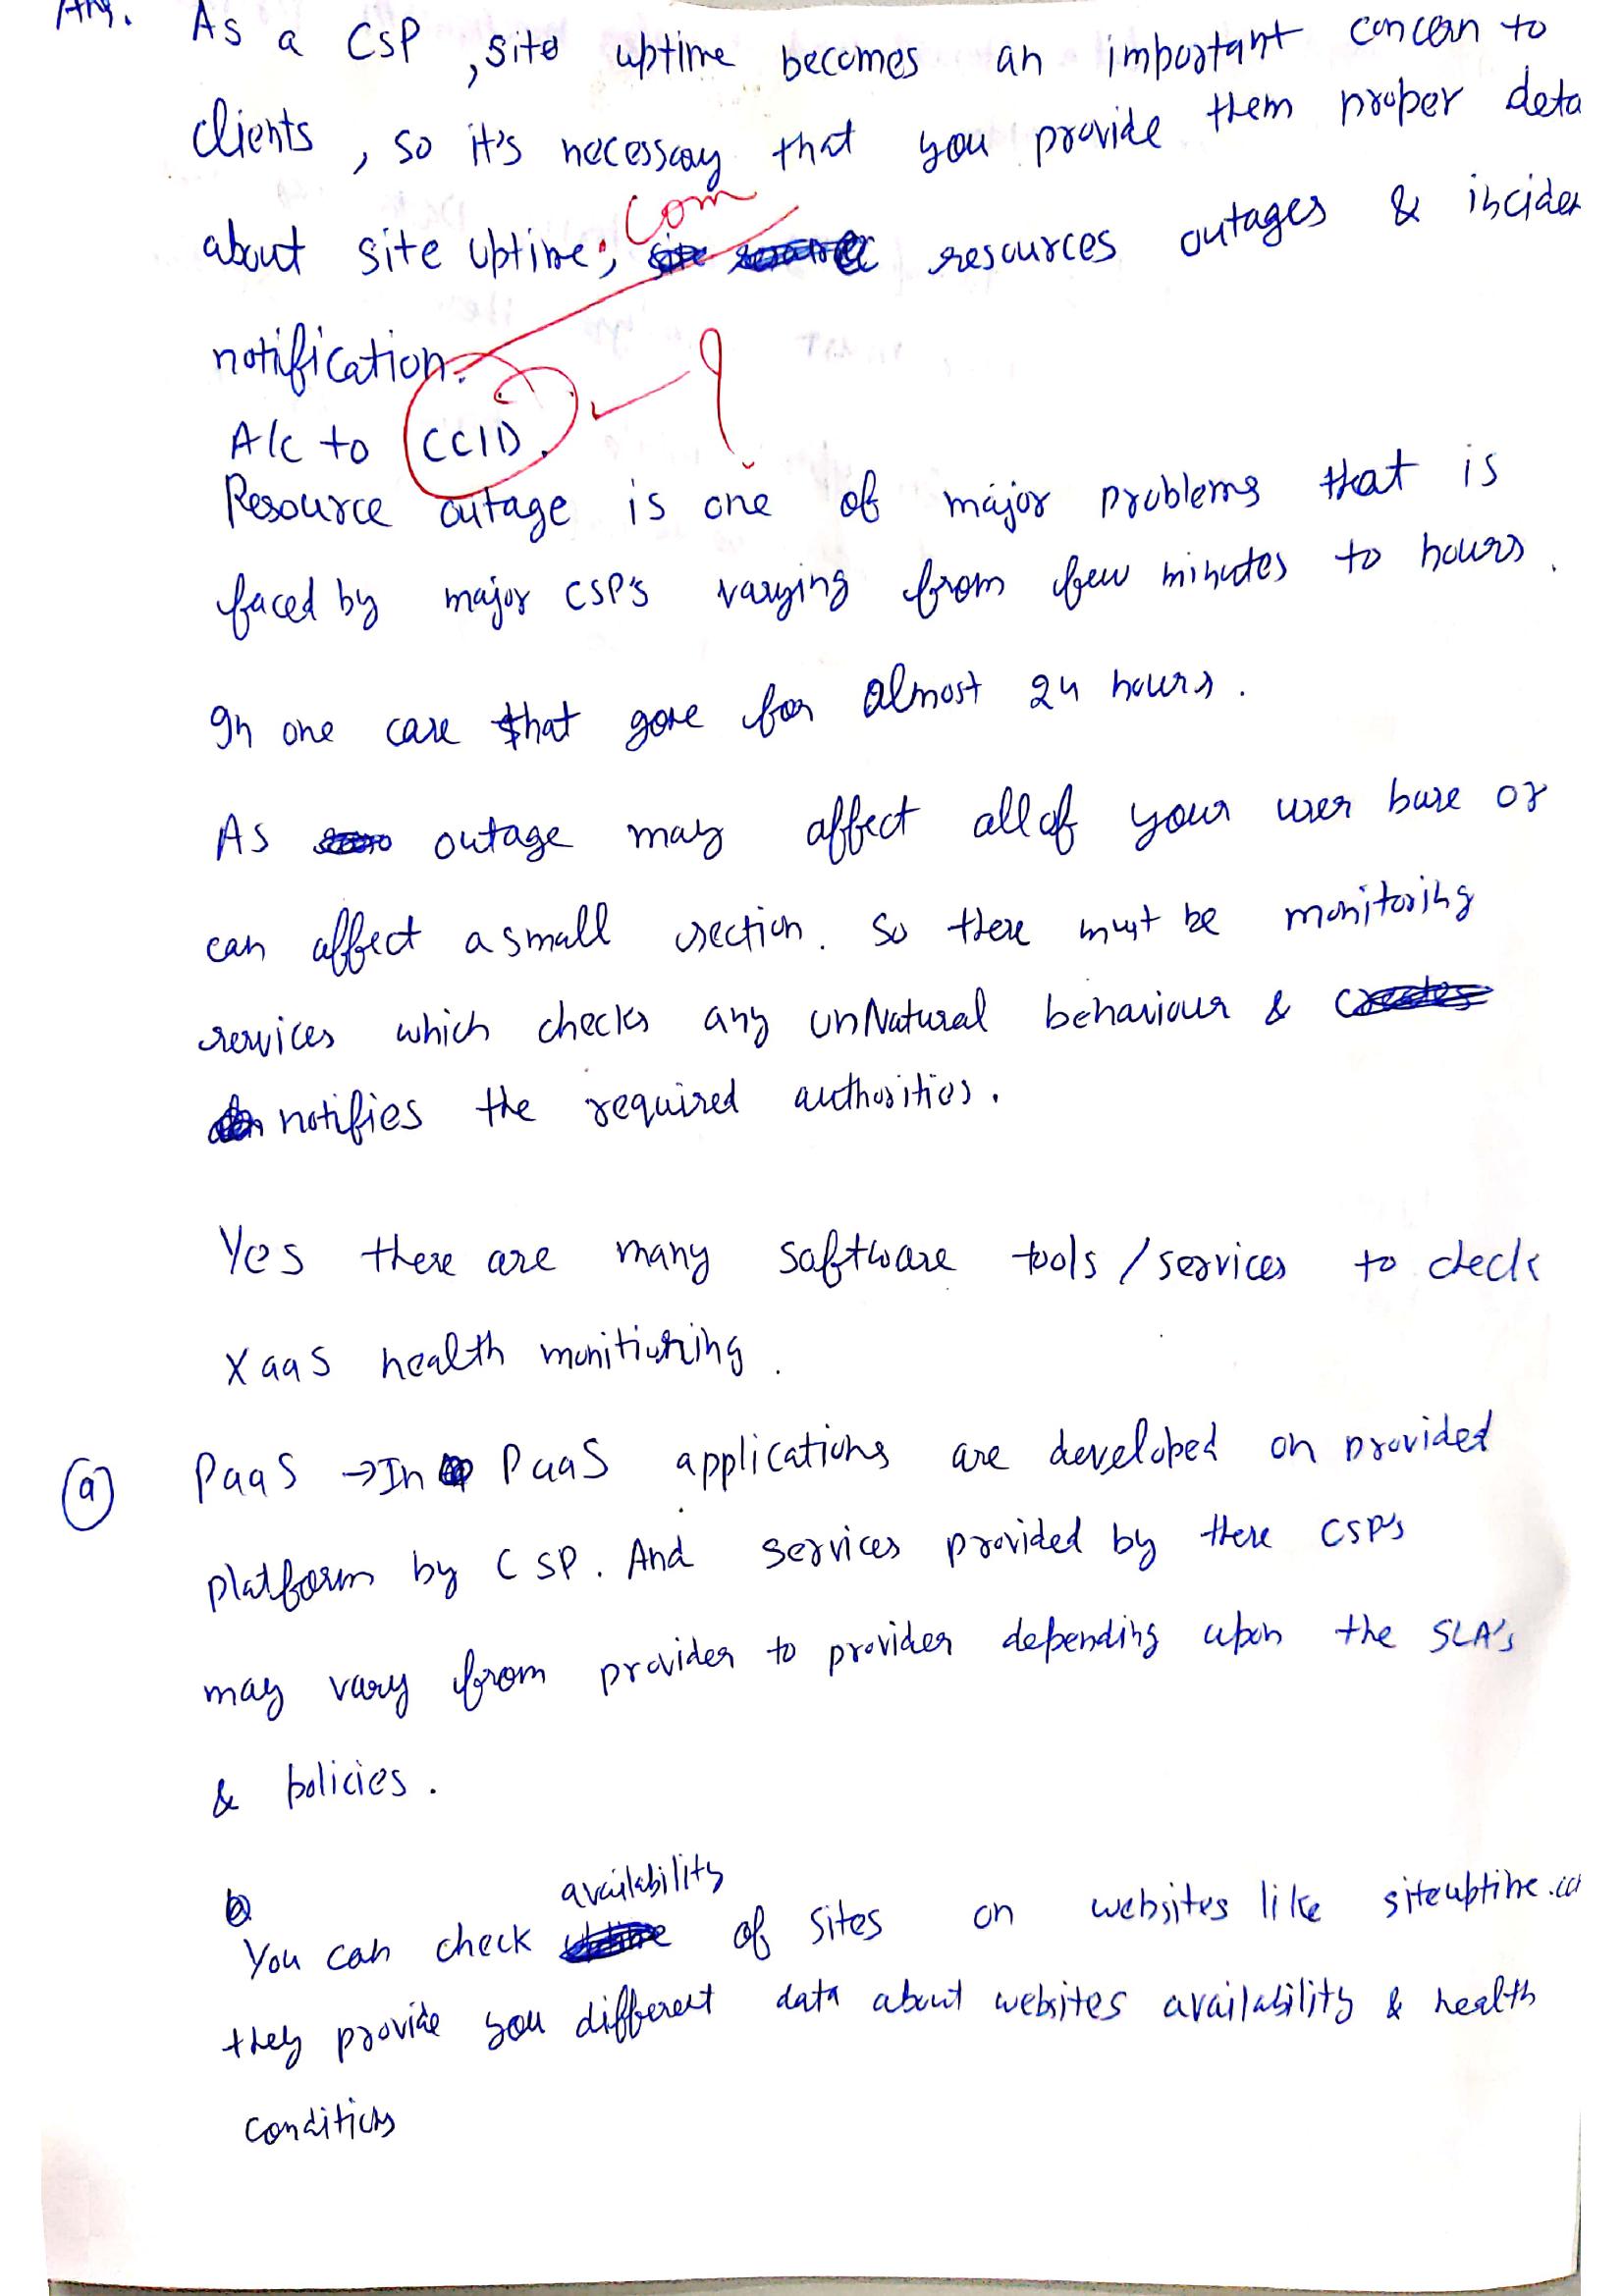 Ans. As a CSP, site uptime becomes an important concern to
clients, so it's necessary that you provide them proper deta
about site uptime, resources outages & inciden
Com
notification.
A/c to CCID. ?
Resource outage is one of major problems that is
faced by major CSP's varying from few minutes to hours.
In one case that gone for almost 24 hours.
As outage may affect all of your user base or
can affect a small section. So there must be monitoring
services which checks any unNatural behaviour &
notifies the required authorities.
Yes there are many software tools / services to check
XaaS health monitioring.
(a) PaaS → In PaaS applications are developed on provided
platform by CSP. And services provided by there CSP's
may vary from provider to provider depending upon the SLA's
& policies.
availability
You can check of sites on websites like siteuptime.co
they provide you different data about websites availability & health
conditions